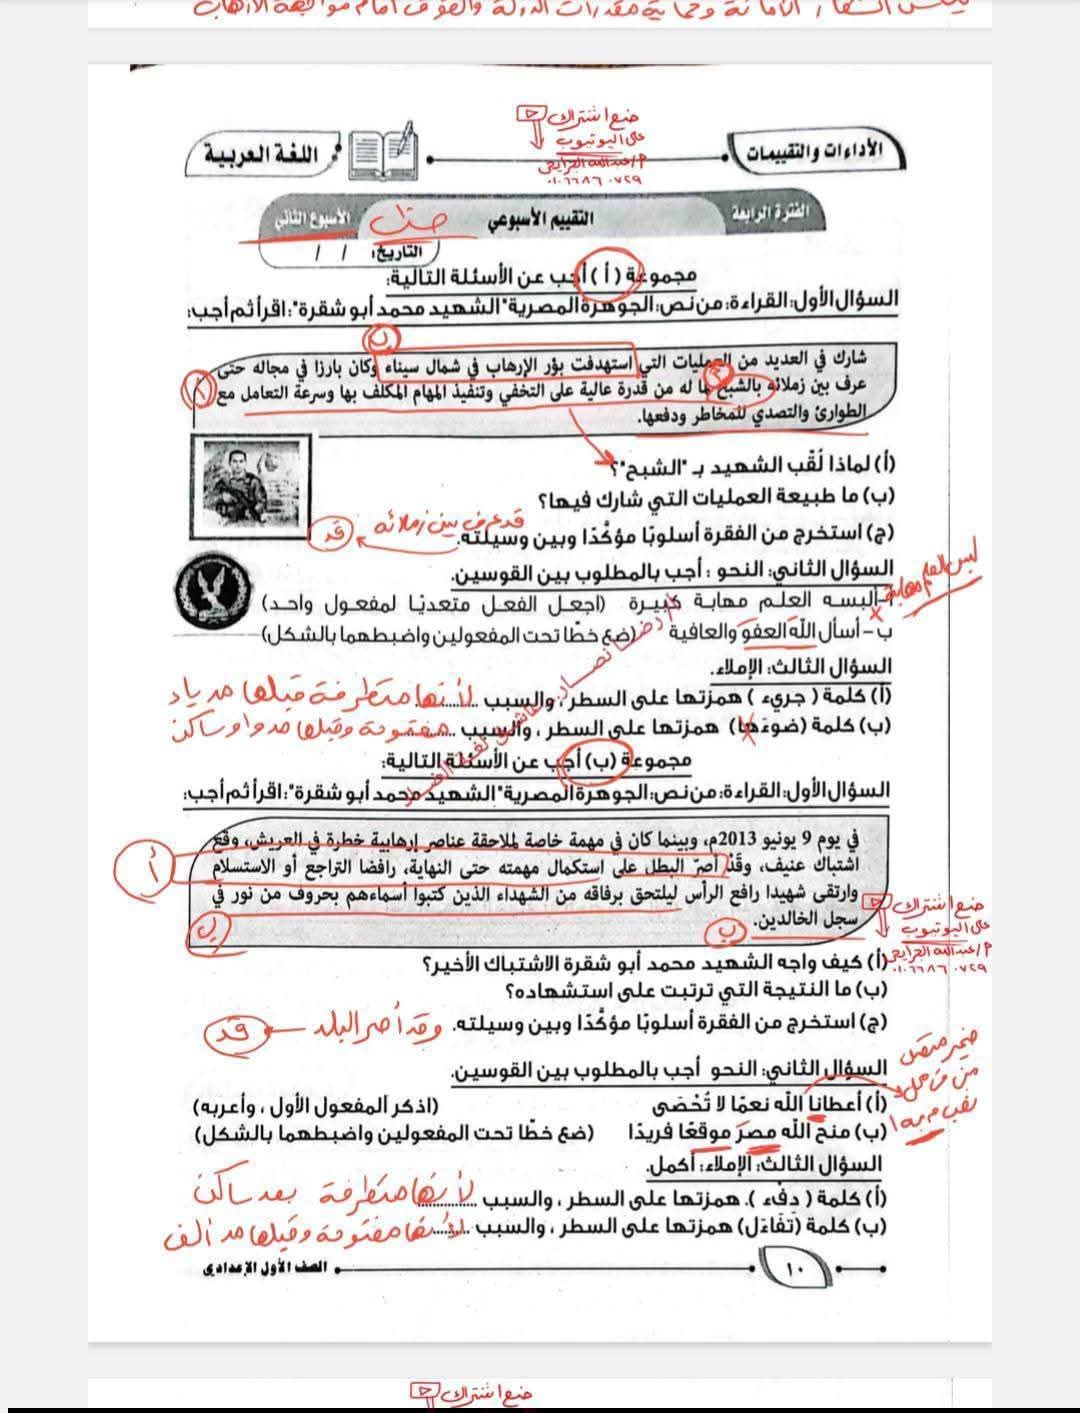 ضع اشتراك
على اليوتيوب
٠١٠٦٦٨٦٠٧٢٩
الأداءات والتقييمات
اللغة العربية
الفترة الرابعة
التقييم الأسبوعي
الأسبوع الثاني
التاريخ: / /
مجموعة (أ) أجب عن الأسئلة التالية:
السؤال الأول: القراءة: من نص: الجوهرة المصرية "الشهيد محمد أبو شقرة": اقرأ ثم أجب:
شارك في العديد من العمليات التي استهدفت بؤر الإرهاب في شمال سيناء وكان بارزا في مجاله حتى
عرف بين زملائه بالشبح لما له من قدرة عالية على التخفي وتنفيذ المهام المكلف بها وسرعة التعامل مع
الطوارئ والتصدي للمخاطر ودفعها.
(أ) لماذا لُقّب الشهيد بـ "الشبح"؟
(ب) ما طبيعة العمليات التي شارك فيها؟
(ج) استخرج من الفقرة أسلوبًا مؤكَّدًا وبين وسيلته.
قد عرف بين زملائه
قد
السؤال الثاني: النحو : أجب بالمطلوب بين القوسين.
أ- ألبسه العلم مهابة كبيرة (اجعل الفعل متعديًا لمفعول واحد)
لبس العلم مهابة
ب- أسأل اللهَ العفوَ والعافية (ضع خطًا تحت المفعولين واضبطهما بالشكل)
السؤال الثالث: الإملاء.
(أ) كلمة ( جريء ) همزتها على السطر، والسبب .......... لأنها متطرفة قبلها مد ياء
(ب) كلمة (ضوءَها) همزتها على السطر ، والسبب .......... مفتوحة وقبلها مد واو ساكن
مجموعة (ب) أجب عن الأسئلة التالية:
السؤال الأول: القراءة: من نص: الجوهرة المصرية "الشهيد محمد أبو شقرة": اقرأ ثم أجب:
في يوم 9 يونيو 2013م، وبينما كان في مهمة خاصة لملاحقة عناصر إرهابية خطرة في العريش، وقع
اشتباك عنيف، وقَدْ أصرّ البطل على استكمال مهمته حتى النهاية، رافضا التراجع أو الاستسلام
وارتقى شهيدا رافع الرأس ليلتحق برفاقه من الشهداء الذين كتبوا أسماءهم بحروف من نور في
سجل الخالدين.
أ
ب
ضع اشتراك
على اليوتيوب
٠١٠٦٦٨٦٠٧٢٩
(أ) كيف واجه الشهيد محمد أبو شقرة الاشتباك الأخير؟
(ب) ما النتيجة التي ترتبت على استشهاده؟
(ج) استخرج من الفقرة أسلوبًا مؤكَّدًا وبين وسيلته.
قد
السؤال الثاني: النحو أجب بالمطلوب بين القوسين.
(أ) أعطانا الله نعمًا لا تُحْصَى (اذكر المفعول الأول ، وأعربه)
ضمير متصل
(ب) منح الله مصرَ موقعًا فريدًا (ضع خطًا تحت المفعولين واضبطهما بالشكل)
السؤال الثالث: الإملاء: أكمل.
(أ) كلمة ( دفْء ). همزتها على السطر ، والسبب .......... لأنها متطرفة بعد ساكن
(ب) كلمة (تَفَاءَل) همزتها على السطر ، والسبب .......... لأنها مفتوحة وقبلها مد ألف
١٠
الصف الأول الإعدادي
ضع اشتراك